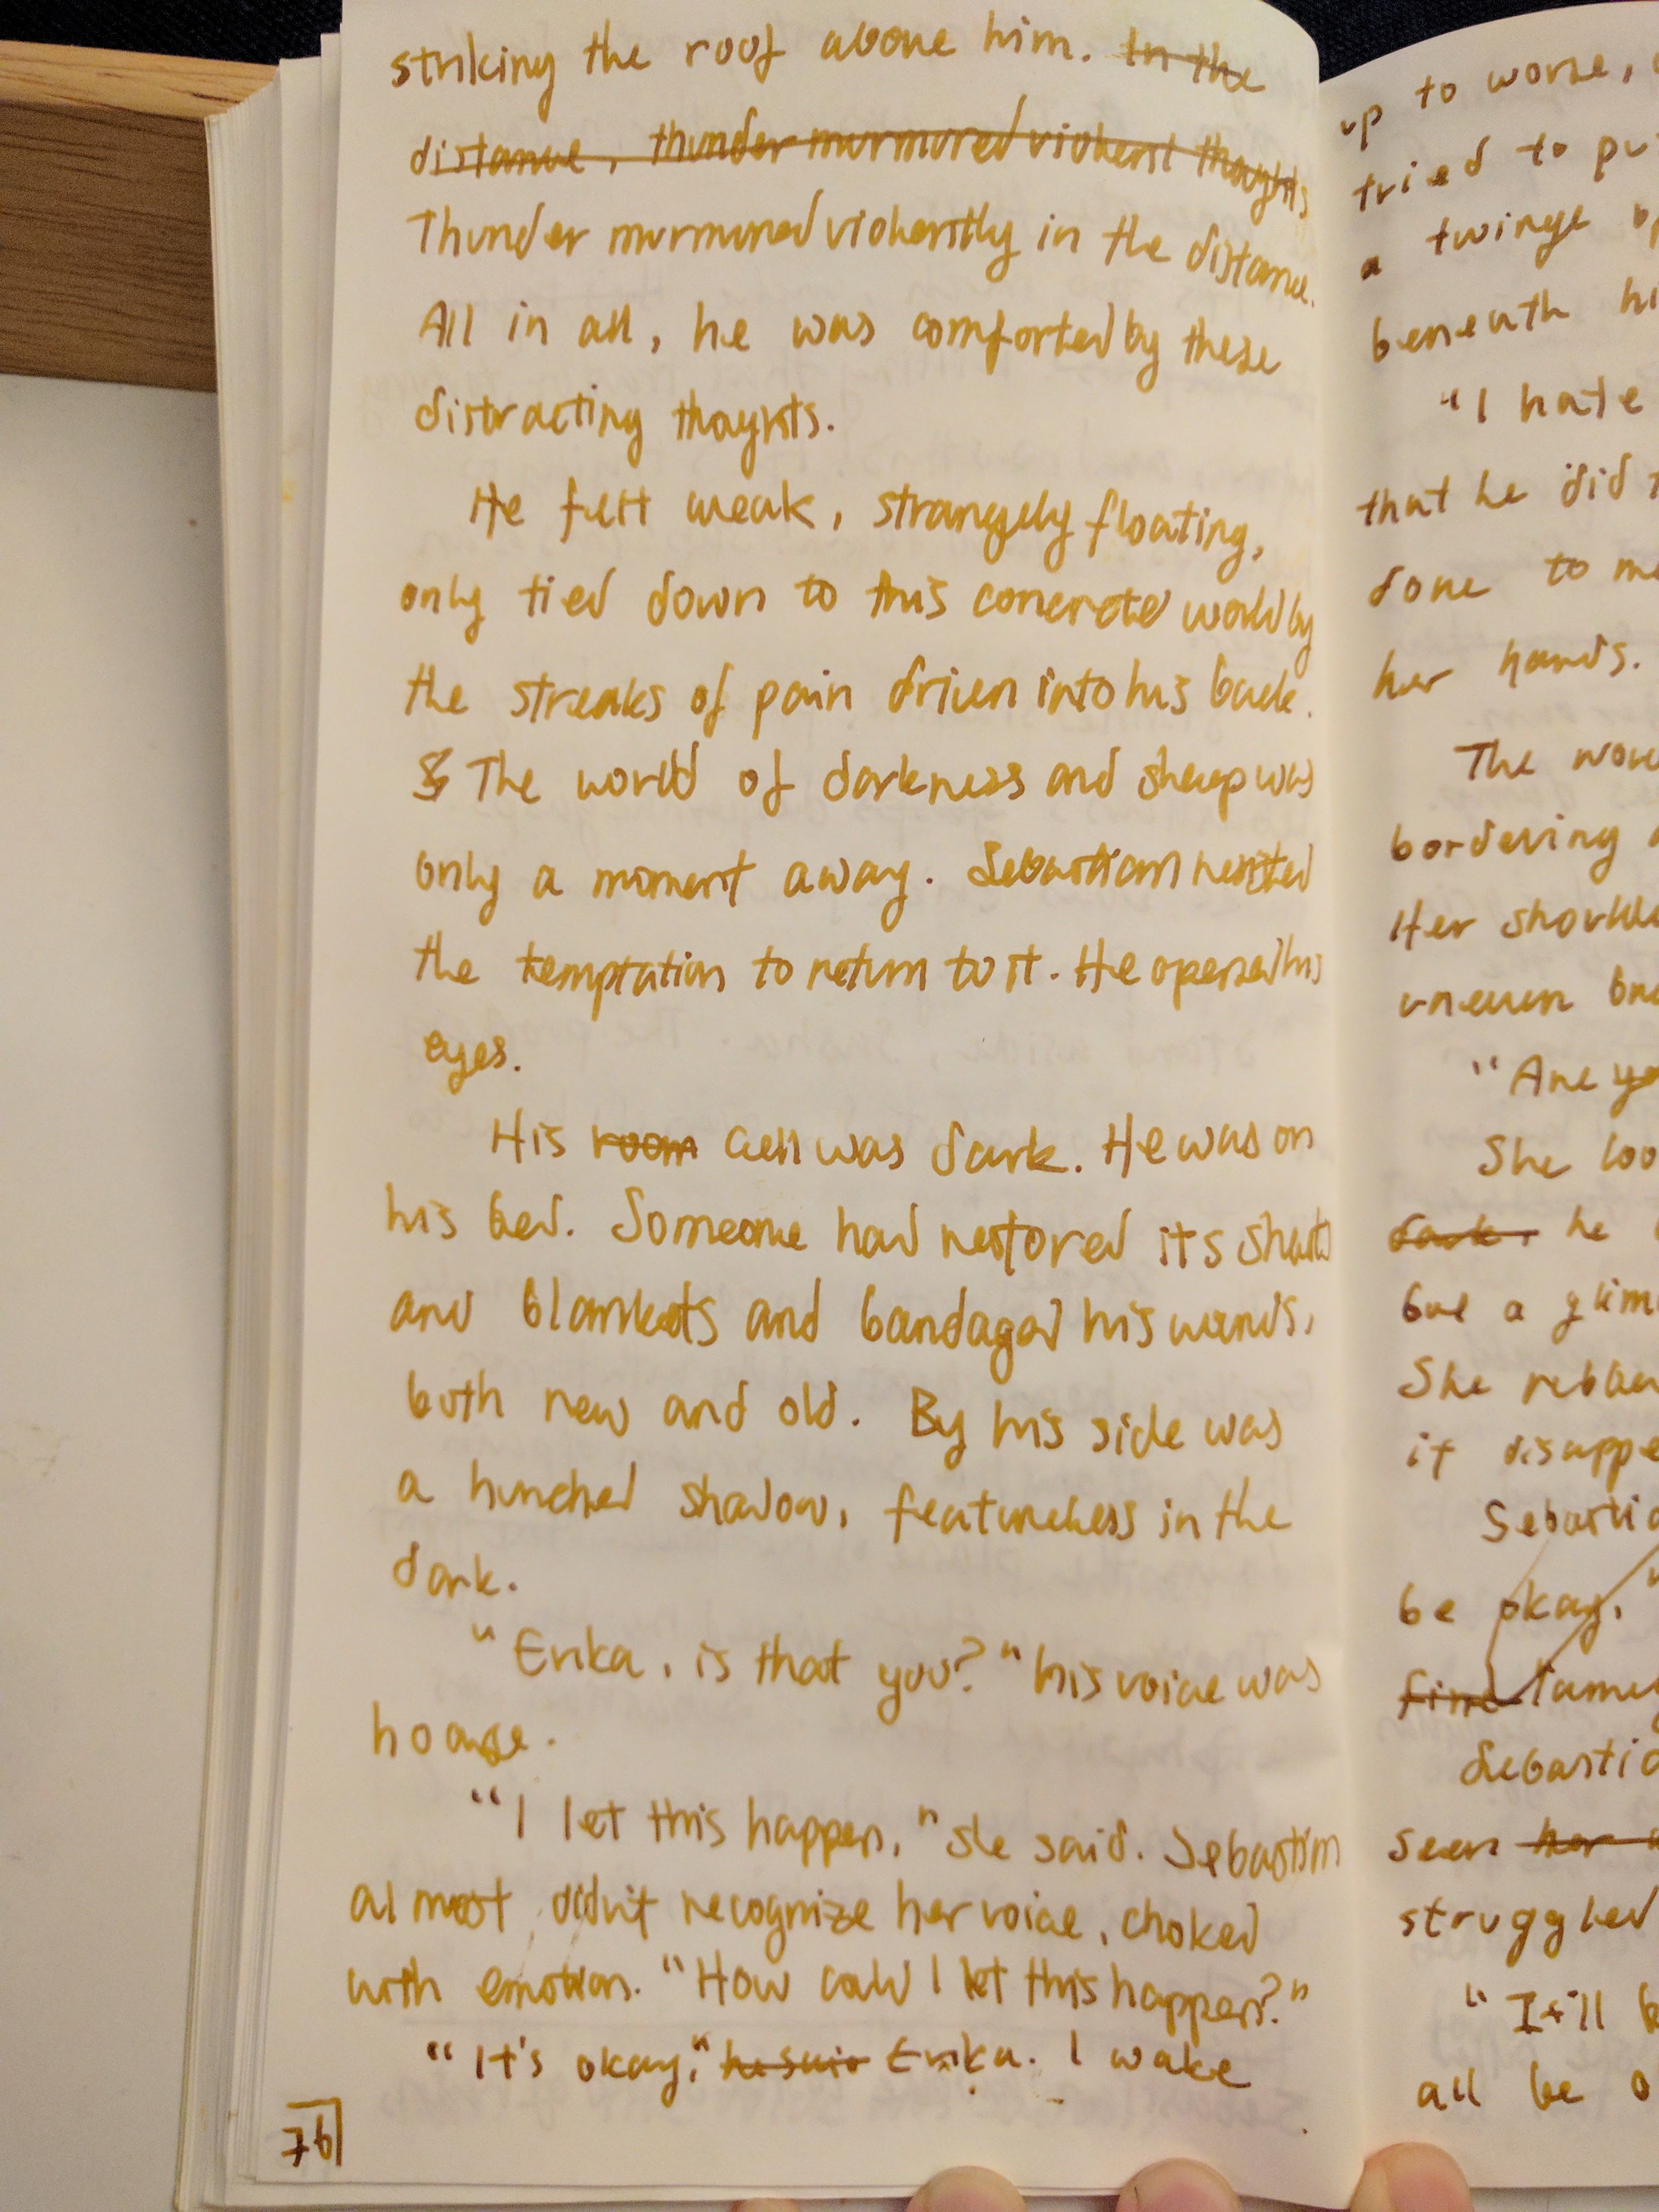 striking the roof above him. In the
distance, thunder murmured violent thoughts
Thunder murmured violently in the distance.
All in all, he was comforted by these
distracting thoughts.
He felt weak, strangely floating,
only tied down to this concrete world by
the streaks of pain driven into his back.
The world of darkness and sheep was
only a moment away. Sebastian resisted
the temptation to return to it. He opened his
eyes.
His room cell was dark. He was on
his bed. Someone had restored its sheets
and blankets and bandaged his wounds,
both new and old. By his side was
a hunched shadow, featureless in the
dark.
"Erika, is that you?" his voice was
hoarse.
"I let this happen," she said. Sebastian
almost didn't recognize her voice, choked
with emotion. "How could I let this happen?"
"It's okay," he said Erika. I wake
76
up to worse,
tried to
a twinge
beneath
"I hate
that he did
done to
her hands.
The
bordering
Her
uneven
"Are
She
dark. he
but a
She
it
be okay,"
find
seen her
struggled
"It'll
all be